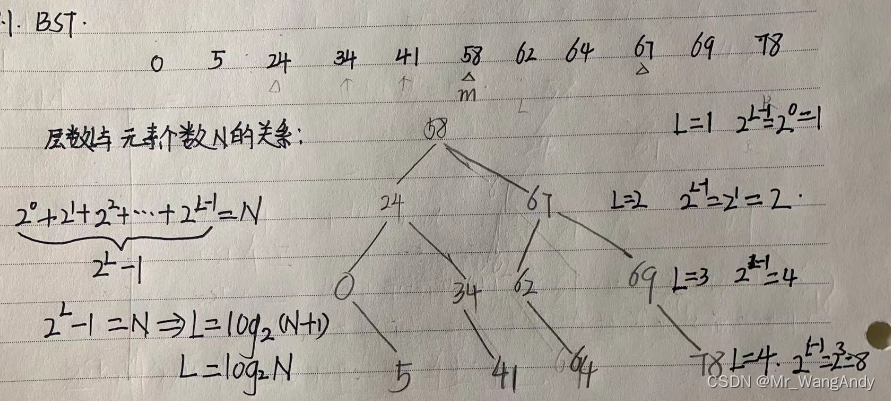 1. BST.
0 5 24 34 41 58 62 64 67 69 78
m
层数L与元素个数N的关系:
58
L=1 2^{L-1}=2^0=1
24 67
L=2 2^{L-1}=2^1=2.
2^0+2^1+2^2+…+2^{L-1}=N
2^L-1
0 34 62 69
L=3 2^{L-1}=4
2^L-1=N⇒L=log_2(N+1)
L=log_2N
5 41 64 78
L=4. 2^{L-1}=2^3=8
CSDN @Mr_WangAndy